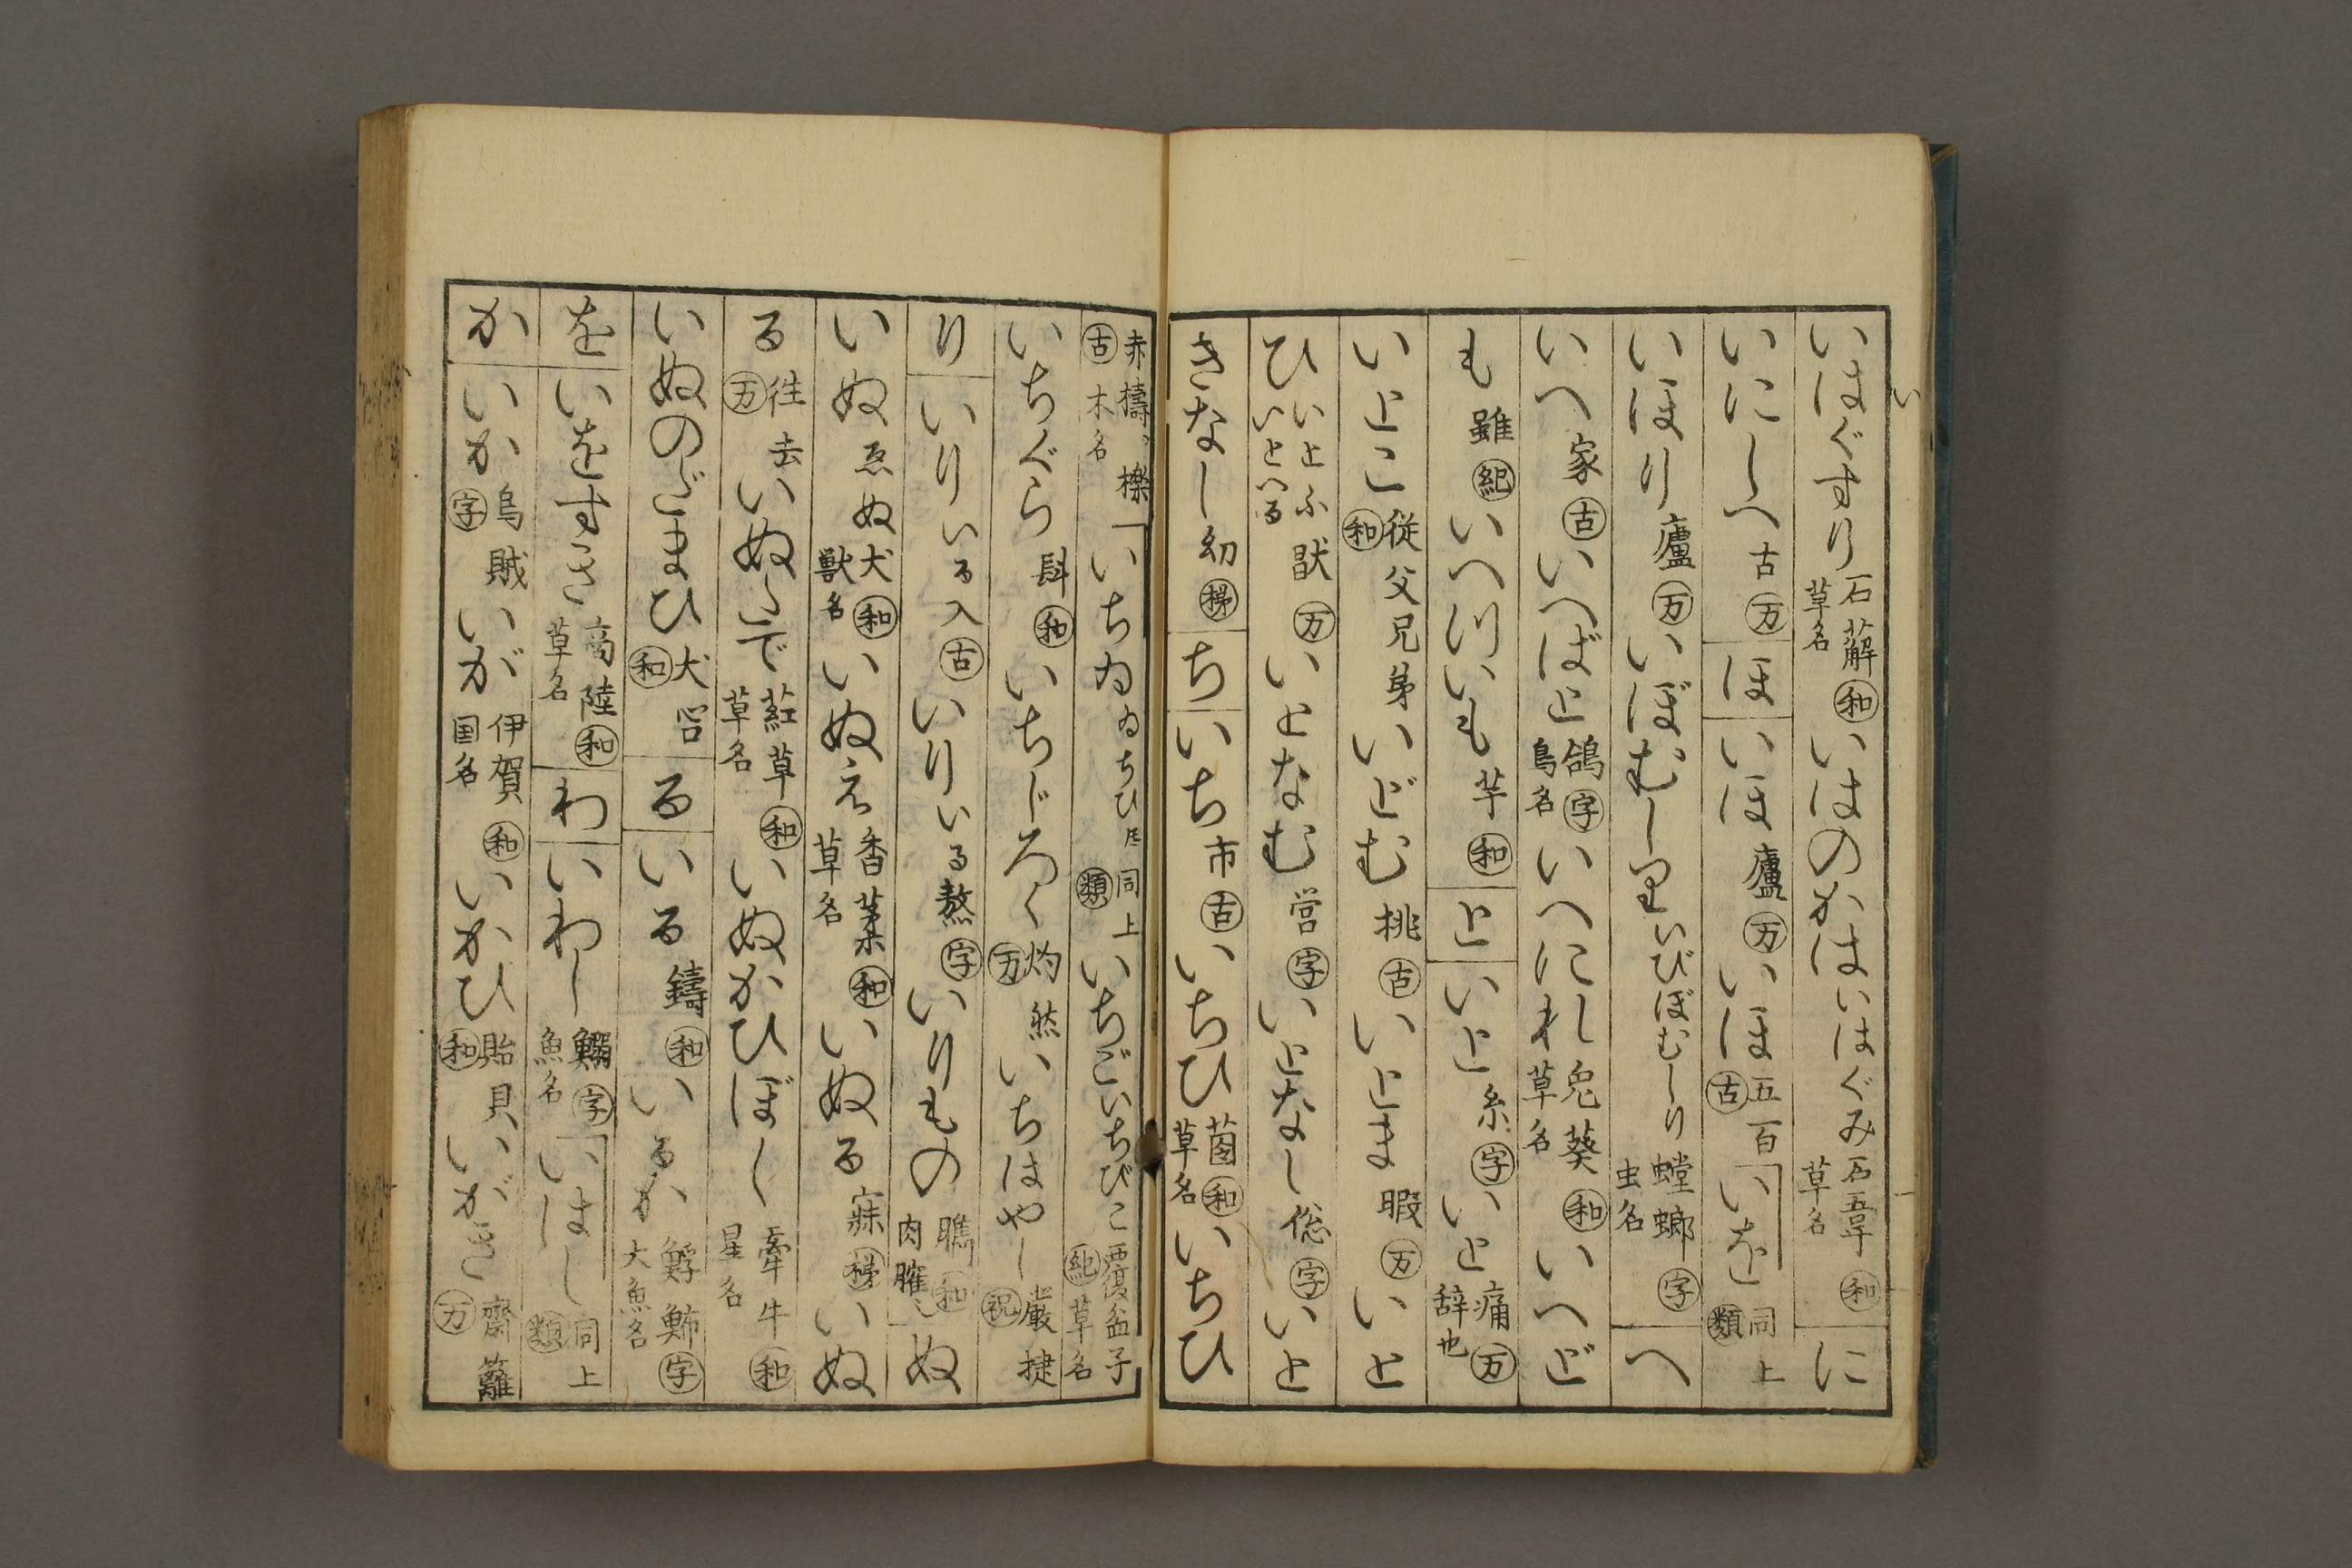 い
いはぐすり 石薢 草名 和 いはのかは いはぐみ 石韋 草名 和 に
いにしへ 古 万 ほ いほ 廬 万 いほ 五百 古 いを 同上 類
いほり 廬 万 いぼむしり いびぼむしり 蟷螂 虫名 字 へ
いへ 家 古 いへばと 鴿 鳥名 字 いへにれ 兎葵 草名 和 いへど
も 雖 紀 いへついも 芋 和 と いと 糸 字 いと 痛 辞也 万
いとこ 従父兄弟 和 いどむ 挑 古 いとま 暇 万 いと
ひ いとふ いとへる 猒 万 いとなむ 営 字 いとなし 字 いと
きなし 幼 ち いち 市 古 いちひ 草名 和 いちひ
赤檮 櫟 木名 古 いちゐ ゐちひ 同上 類 いちご いちびこ 覆盆子 草名 紀
いちぐら 肆 和 いちじろく 灼然 万 いちはやし 厳捷 祝
り いり いる 入 古 いり いる 熬 字 いりもの 肉 和 ぬ
いぬ ゑぬ 犬 獣名 和 いぬえ 香葇 草名 和 いぬる 寐 いぬ
る 往去 万 いぬたで 葒草 草名 和 いぬかひぼし 牽牛 星名 和
いぬのどまひ 犬 和 る いる 鋳 和 いるか 大魚名 字
を いをすき 商陸 草名 和 わ いわし 鰯 魚名 字 いはし 同上 類
か いか 烏賊 字 いが 伊賀 国名 和 いかひ 貽貝 和 いがき 齋籬 万